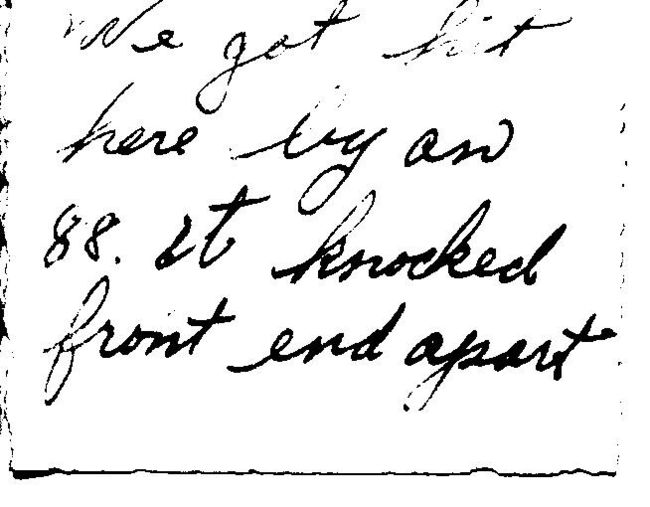 We got hit
here by an
88. It knocked
front end apart